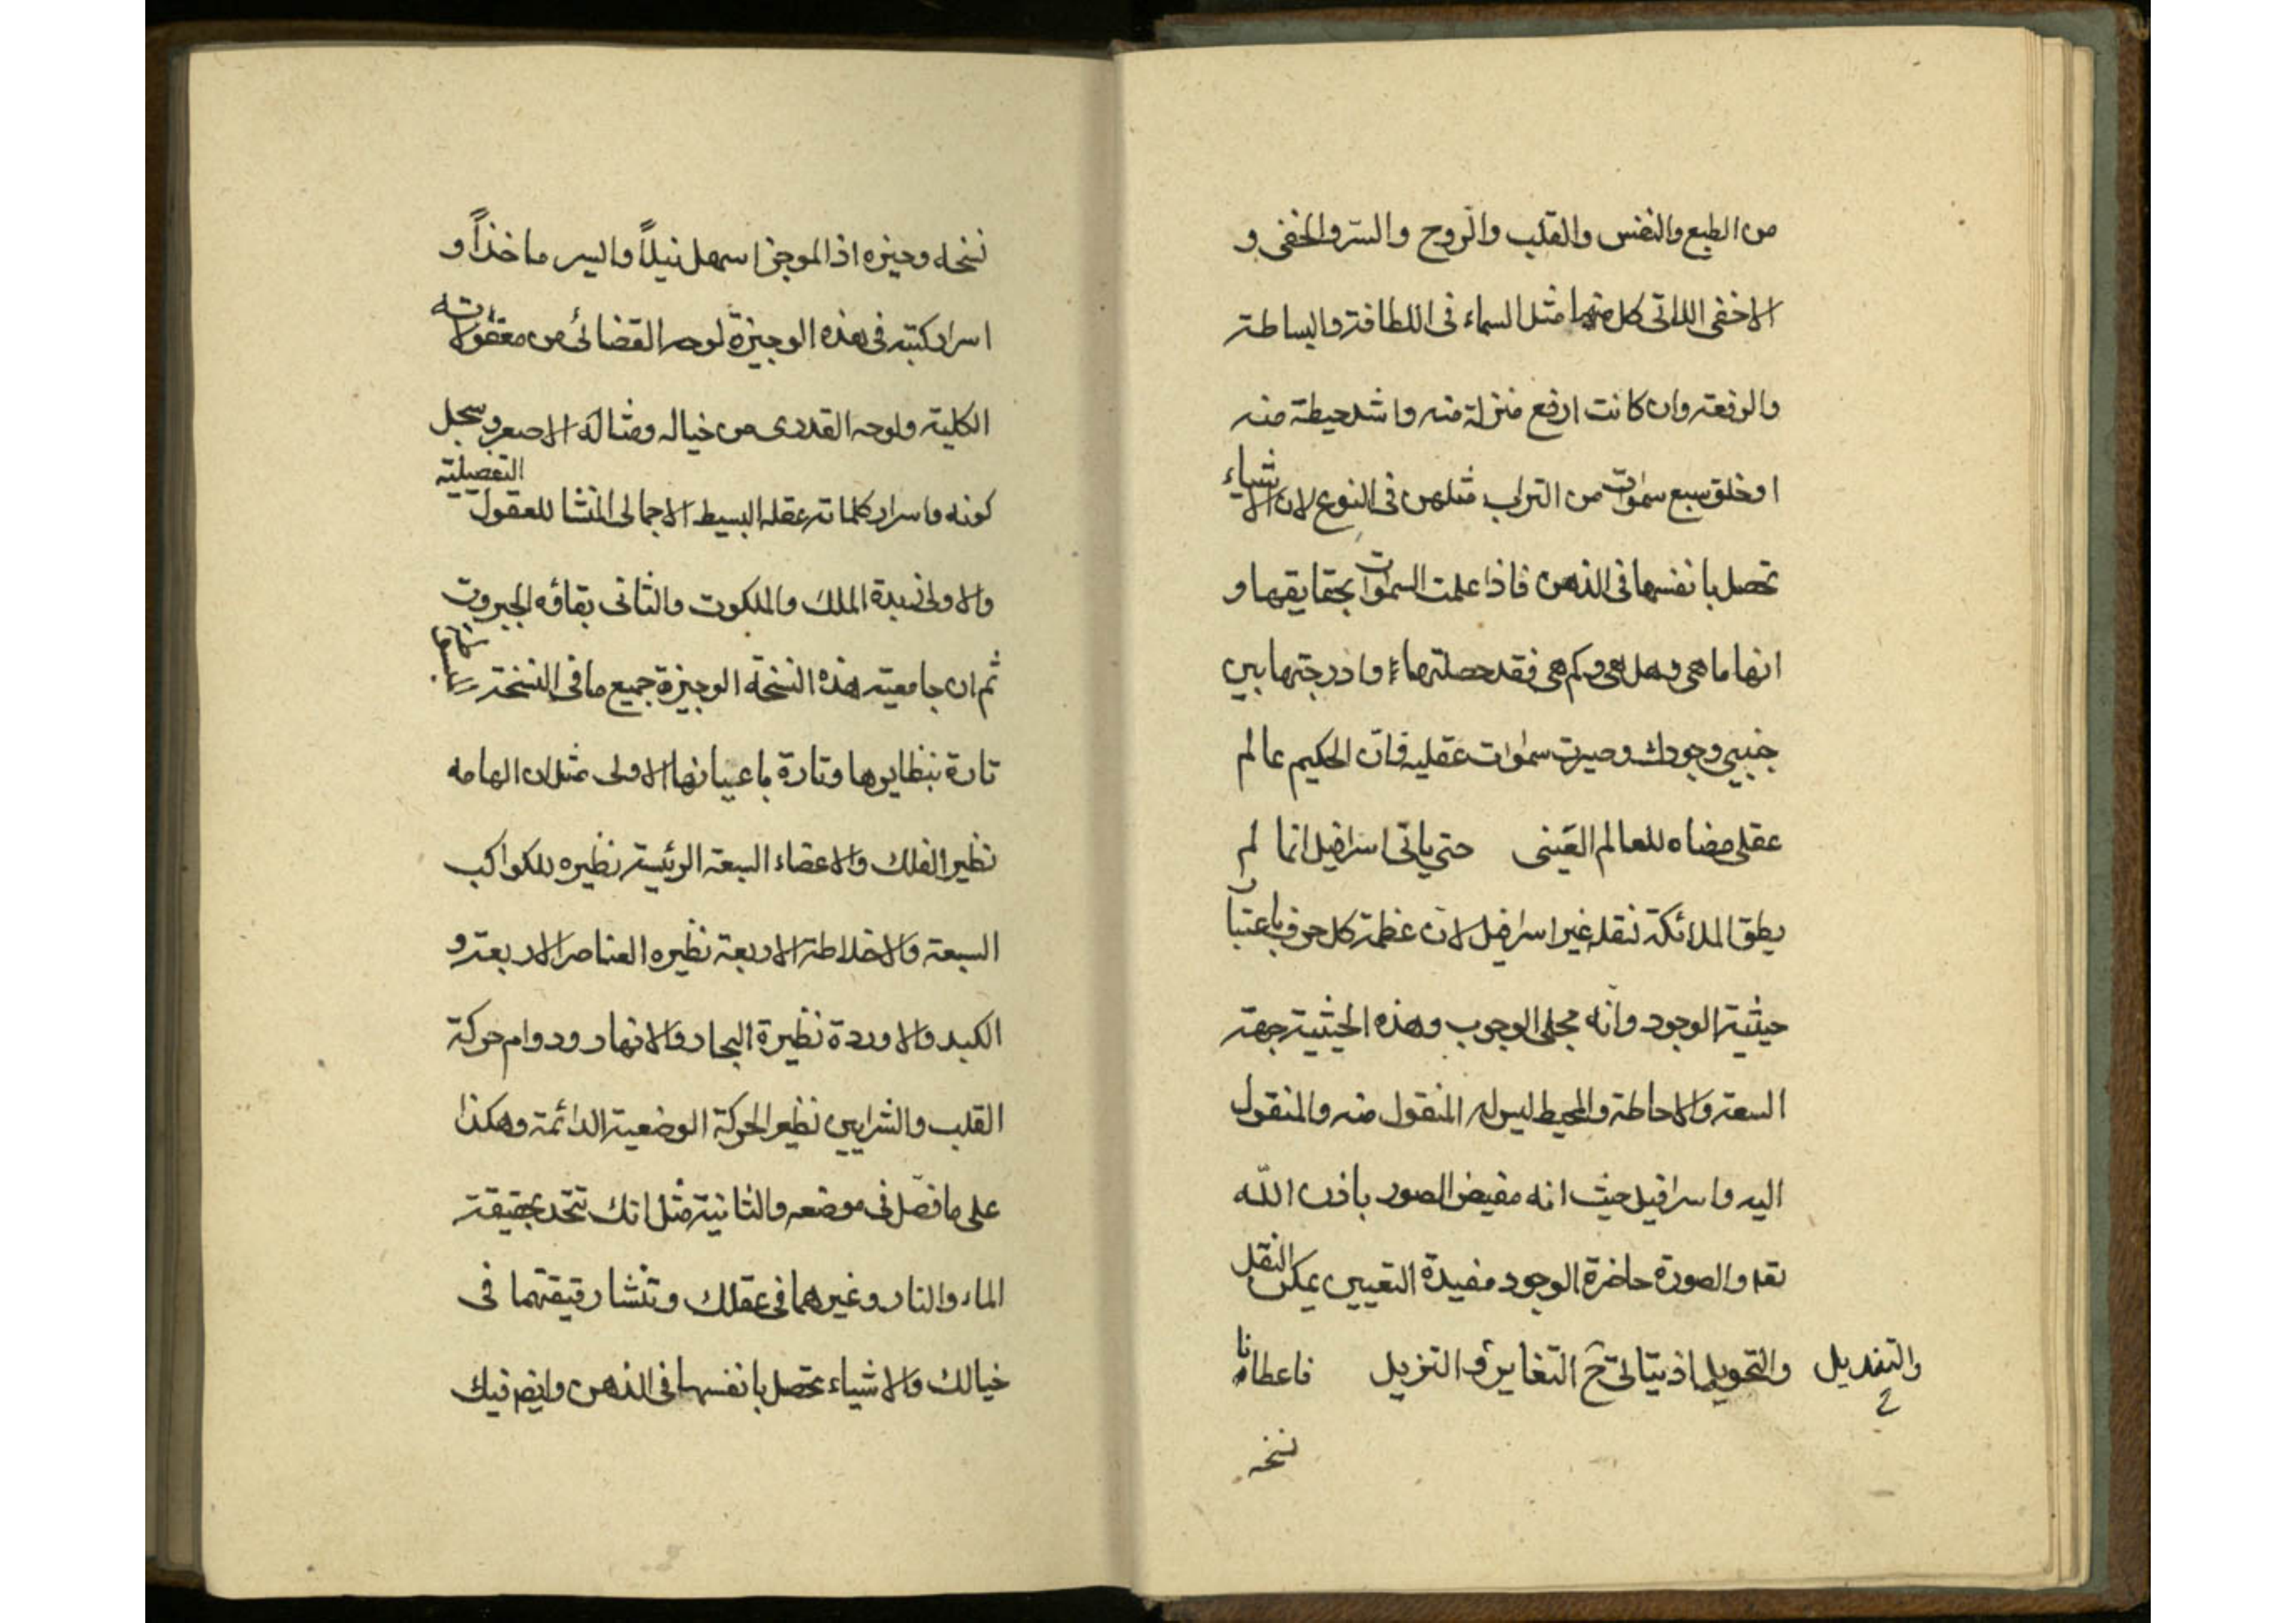 من الطبع والنفس والقلب والروح والسّر والخفى و
الاخفى اللاتى كل منها مثل السماء فى اللطافة والبساطة
والرفعة وان كانت ارفع منزلة منه واشد حيطة منه
اوخلق سبع سموات من التراب مثلهن فى النوع لان الاشياء
تحصل بانفسها فى الذهن فاذا علمت السموات بحقايقها و
انها ما هى وهل هى وكم هى فقد حصلتها وادرجتها بين
جنبى وجودك وصيرت سموات عقليه فانّ الحكيم عالم
عقلى مضاه للعالم العَينى حتى ياتى اسرافيل انما لم
يطق الملائكة نقله غير اسرافيل لانّ عظمة كل حرف باعتبار
حيثية الوجود وانّه مجلى الوجوب وهذه الحيثية جهة
السعة والاحاطة والمحيط ليس له المنقول منه والمنقول
اليه واسرافيل حيث انه مفيض الصور باذن اللّه
نقله والصورة حاضرة الوجود مفيدة التعيين يمكن النقل
والتحويل اذ يتاتى ح التغاير و التنزيل فاعطانا
والتبديل
نسخه
نسخه وجيزه اذ الموجز اسهل نيلاً وايسر ماخذاً و
اسرار كتبه فى هذه الوجيزة لوحه القضائى من معقولاته
الكلية ولوحه القدرى من خياله ومثاله الاصغر وسجل
كونه واسرار كلماته عقله البسيط الاجمالى المنشا للعقول التفصيلية
والاولى نبدة الملك والملكوت والثانى بقاؤه الجبروت
ثم ان جامعية هذه النسخة الوجيزة جميع ما فى النسخة
تارة بنظايرها وتارة باعيانها الاولى مثل ان الهامه
نظير الفلك والاعضاء السبعة الرئيسة نظيره للكواكب
السبعة والاخلاطة الاربعة نظيره العناصر الاربعة و
الكبد والاوردة نظيرة البحار والانهار ودوام حركة
القلب والشرايين نظير الحركة الوضعية الدائمة وهكذا
على ما فصّل فى موضعه والثانية مثل انك تتحد بحقيقة
الماء والنار وغيرهما فى عقلك وتنشا رقيقتهما فى
خيالك والاشياء تحصل بانفسها فى الذهن وايضا فيك